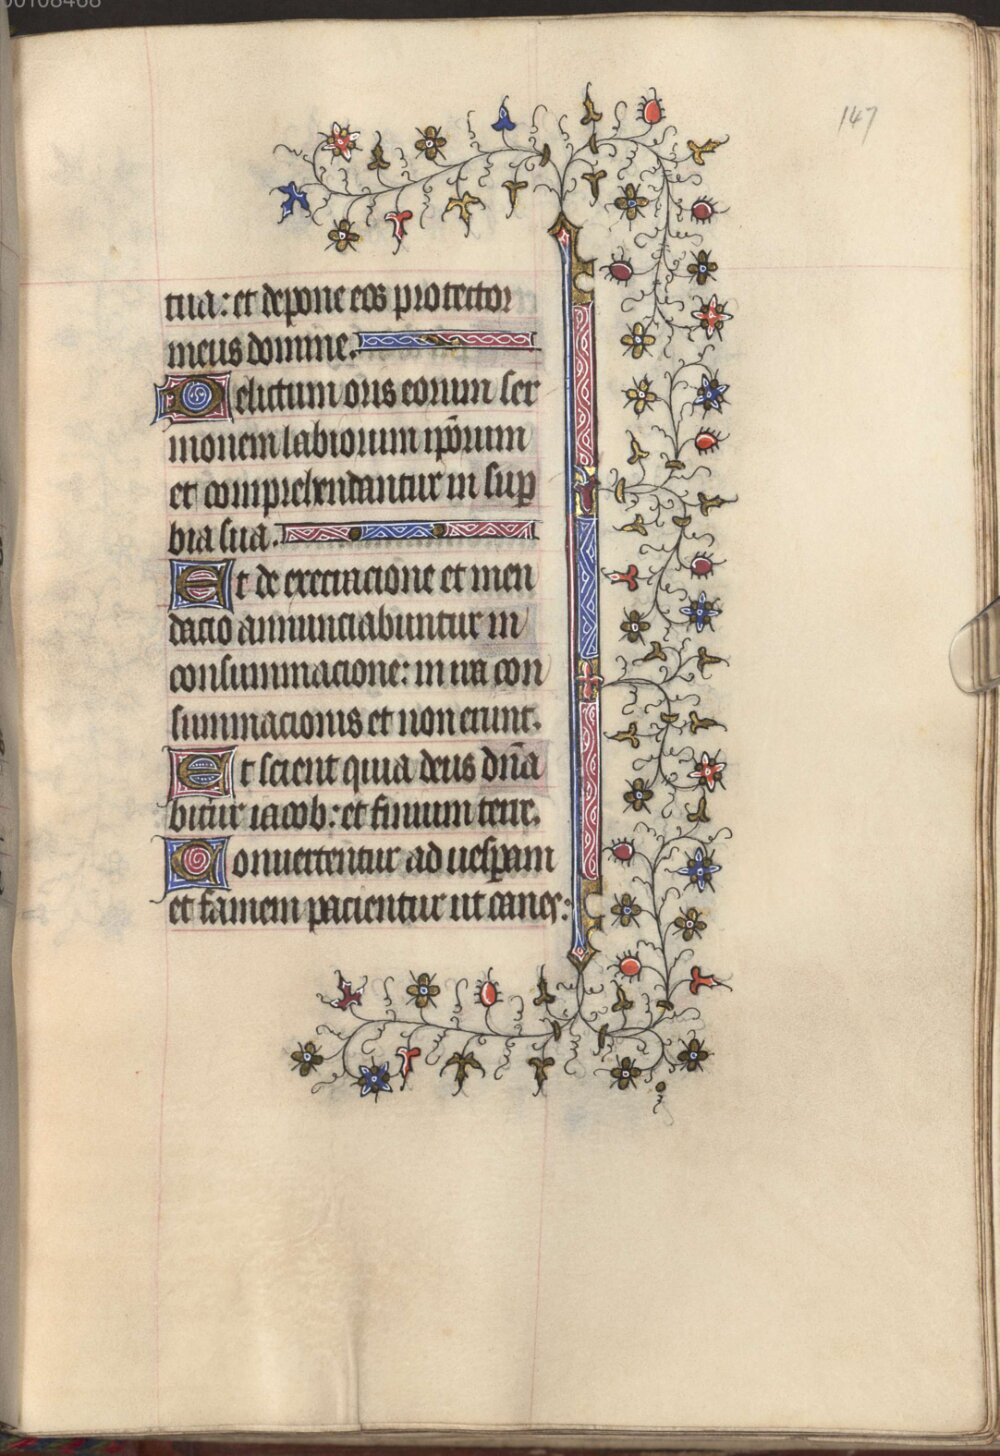 00108468
147
tua: et depone eos protector
meus domine.
Delictum oris eorum ser
monem labiorum ip̄orum
et comprehendantur in sup̲
bia sua.
Et de execracione et men
dacio annunciabuntur in
consummacione: in ira con
summacionis et non erunt.
Et scient quia deus dn̄a
bitur iacob: et finium terre.
Conuertentur ad uesp̲am
et famem pacientur ut canes: